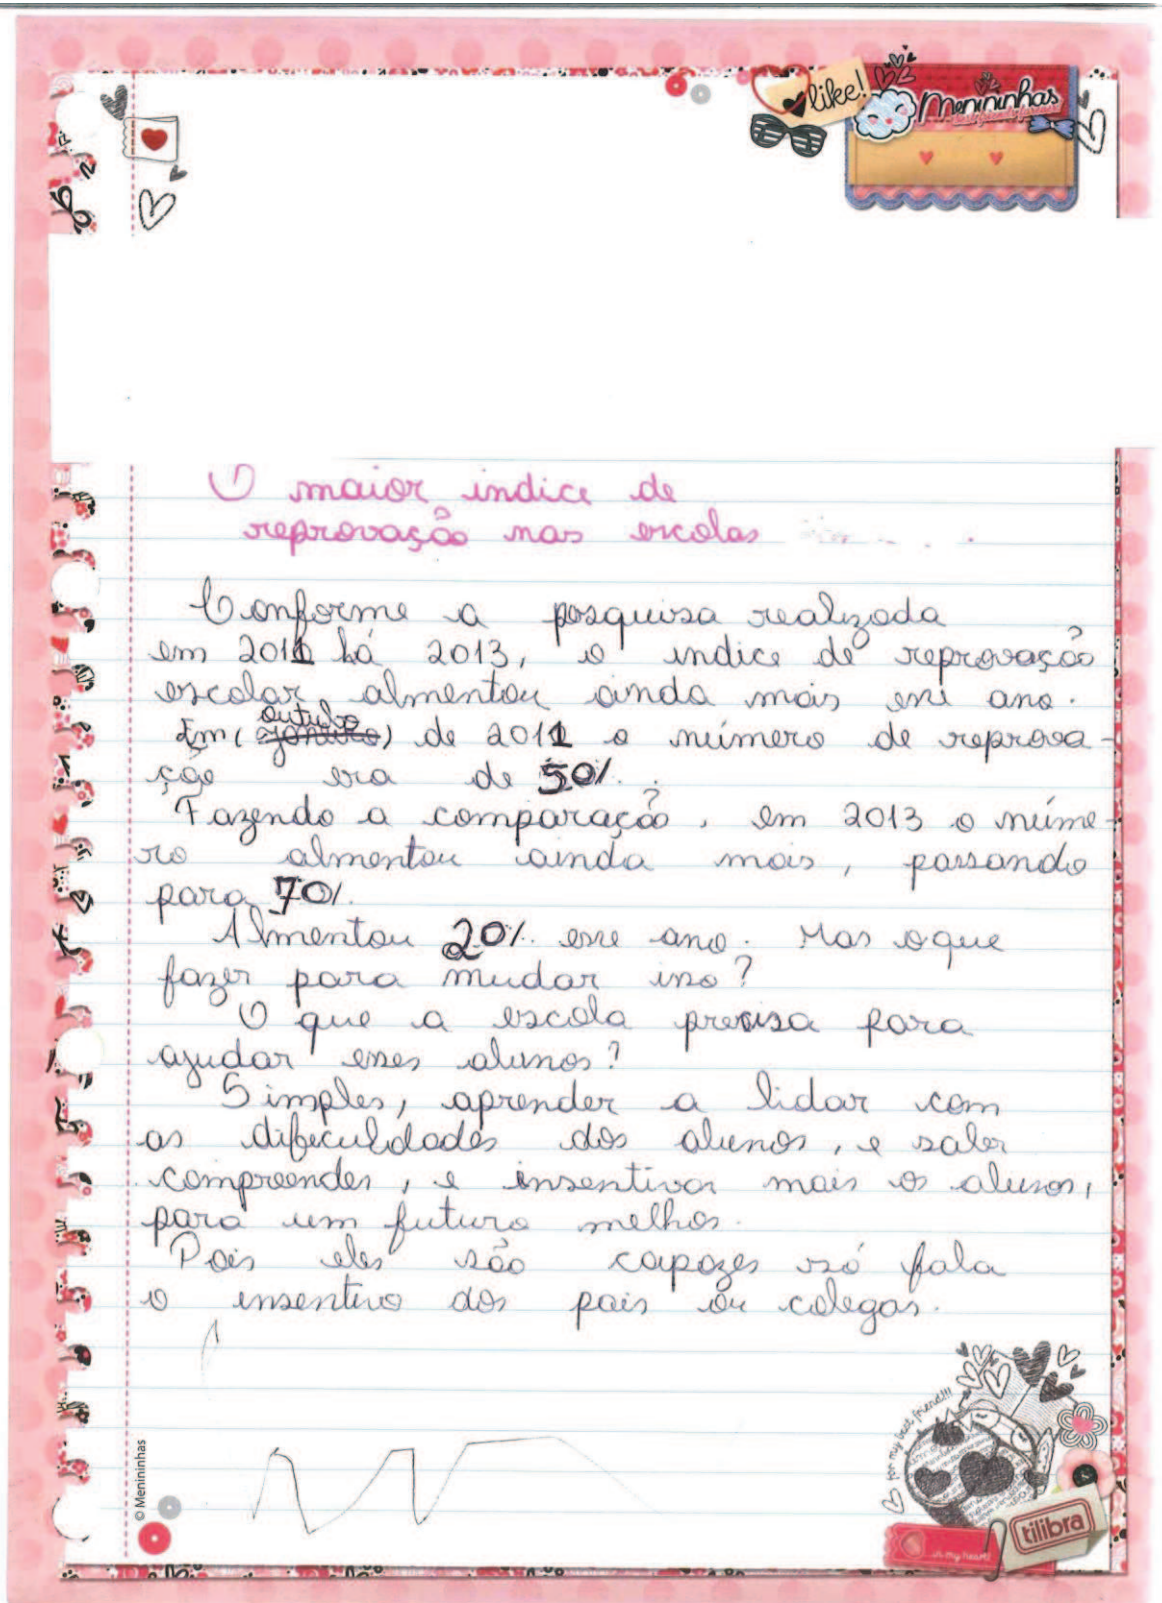 like!
Menininhas
O maior indice de
reprovação nas escolas
Conforme a pesquisa realizada
em 2011 há 2013, o indice de reprovação
escolar almentou ainda mais esse ano.
Em (outubro janeiro) de 2011 o número de reprova-
ção era de 50%.
Fazendo a comparação, em 2013 o núme-
ro almentou ainda mais, passando
para 70%.
Almentou 20% esse ano. Mas o que
fazer para mudar isso?
O que a escola precisa para
ajudar esses alunos?
Simples, aprender a lidar com
as dificuldades dos alunos, e saber
compreender, e insentivar mais os alunos,
para um futuro melhor.
Pois eles são capazes só fala
o insentivo dos pais ou colegas.
for my best friend!!!
© Menininhas
tilibra
in my heart